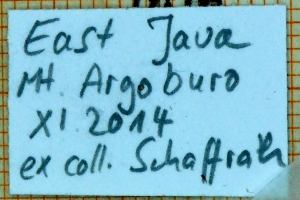 East Java
Mt. Argoburo
XI. 2014
ex coll. Schaffrath